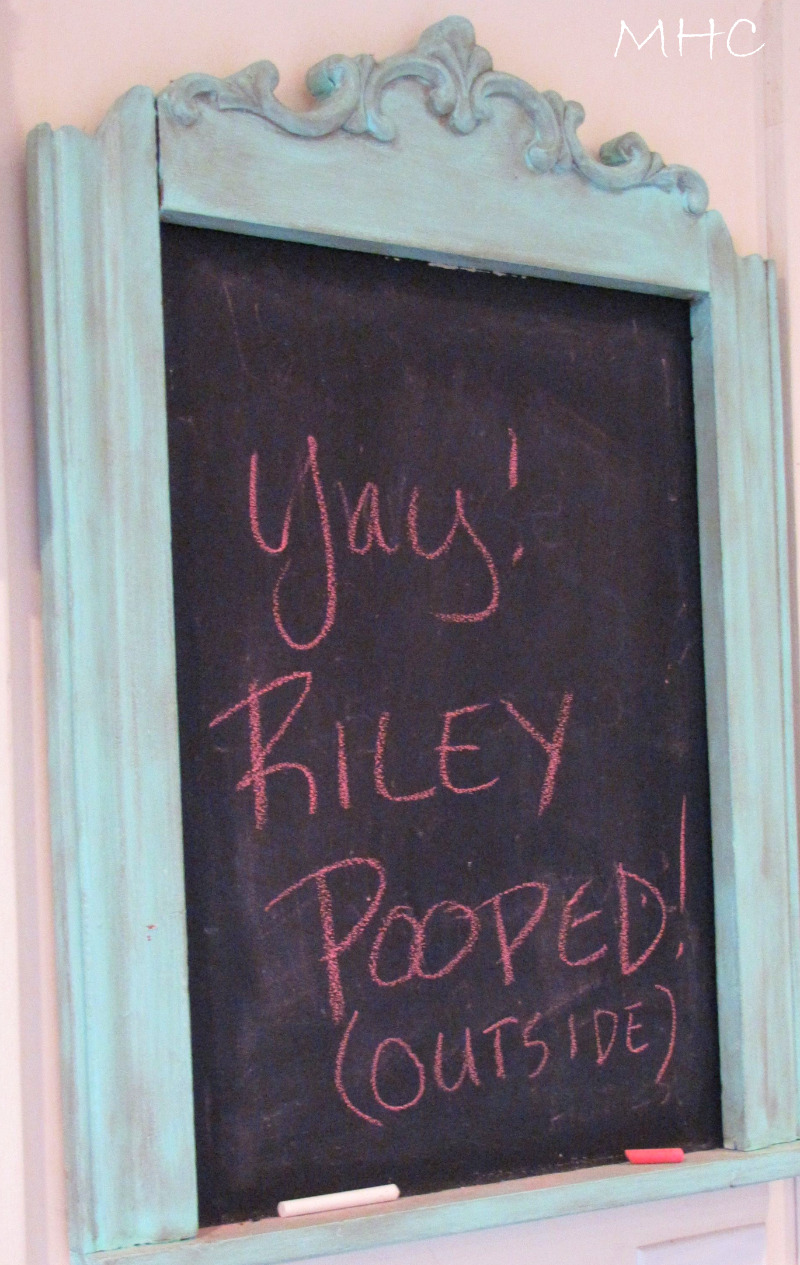 MHC
Yay!
RILEY
POOPED!
(OUTSIDE)